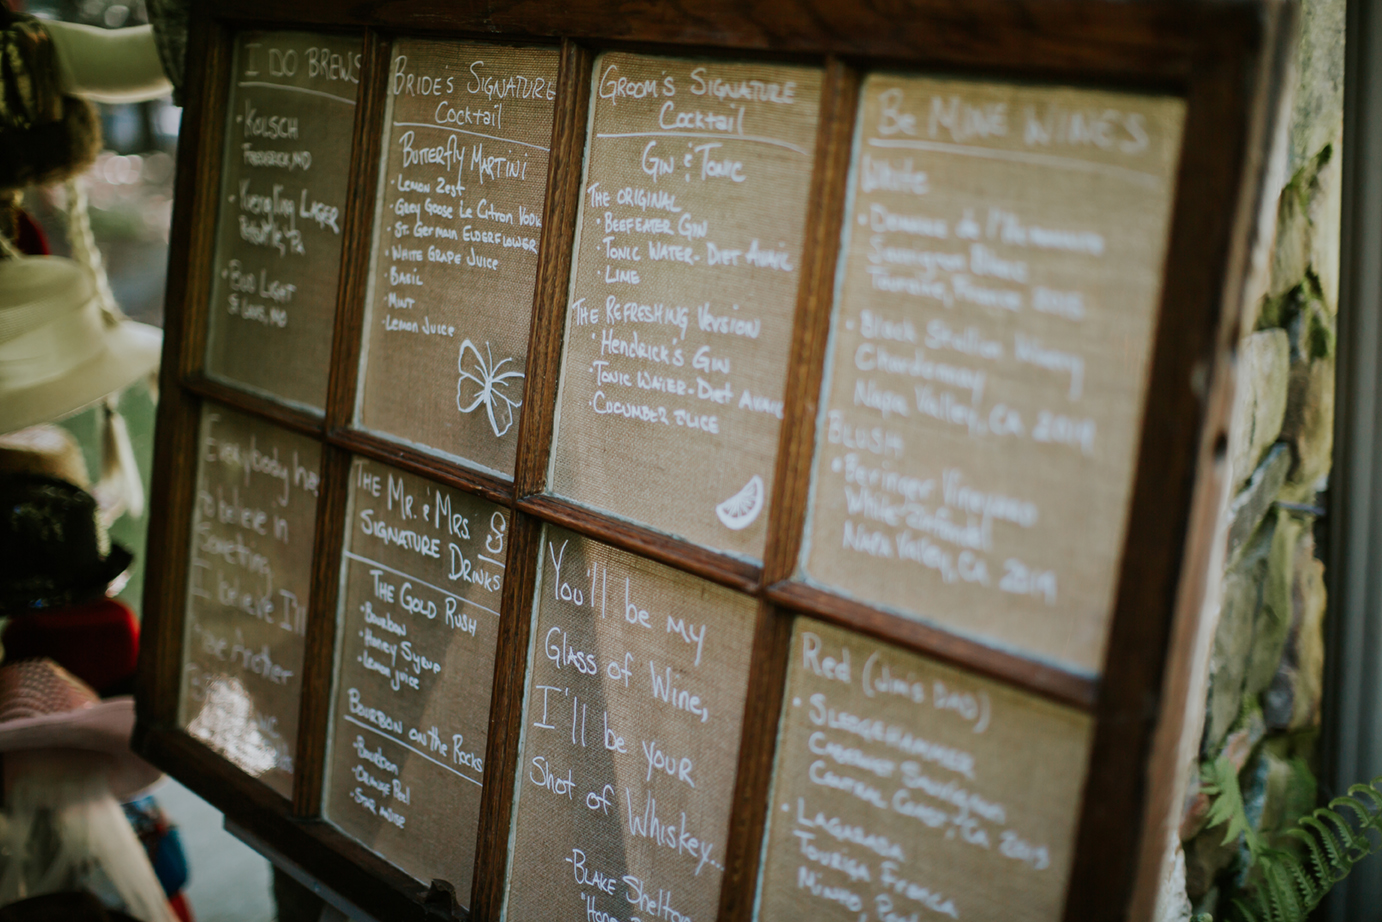 I DO BREWS
• KOLSCH
FREDERICK, MD
• Yuengling LAGER
Pottsville, PA
• BUD LIGHT
ST LOUIS, MO
BRIDE'S SIGNATURE
Cocktail
BUTTERFLY MARTINI
• LEMON ZEST
• GREY GOOSE Le CITRON VODK
• ST. GERMAN ELDERFLOWER
• WHITE GRAPE JUICE
• BASIL
• MINT
• LEMON JUICE
GROOM'S SIGNATURE
Cocktail
GIN & TONIC
THE ORIGINAL
• BEEFEATER GIN
• TONIC WATER - DIET AVAIL
• LIME
THE REFRESHING VERSION
• HENDRICK'S GIN
• TONIC WATER - DIET AVAIL
• CUCUMBER SLICE
Be MINE WINES
White
• Domaine de l'
Sauvignon Blanc
Touraine, France 2015
• Black Stallion Winery
Chardonnay
Napa Valley, CA 2014
BLUSH
• Beringer Vineyards
White Zinfandel
Napa Valley, CA 2014
Everybody has
to believe in
Something
I believe I'll
have Another
THE MR. & MRS. 8
SIGNATURE DRINKS
THE GOLD RUSH
• Bourbon
• Honey Syrup
• Lemon Juice
BOURBON ON the ROCKS
• Bourbon
• ORANGE Peel
• STAR ANISE
You'll be my
Glass of Wine,
I'll be your
Shot of Whiskey...
-BLAKE Shelton
"Hone
Red (Jim's DAD)
• SLEDGEHAMMER
CABERNET Sauvignon
CENTRAL COAST, CA 2013
• LAGARADA
TOURIGA FRANCA
MINHO,